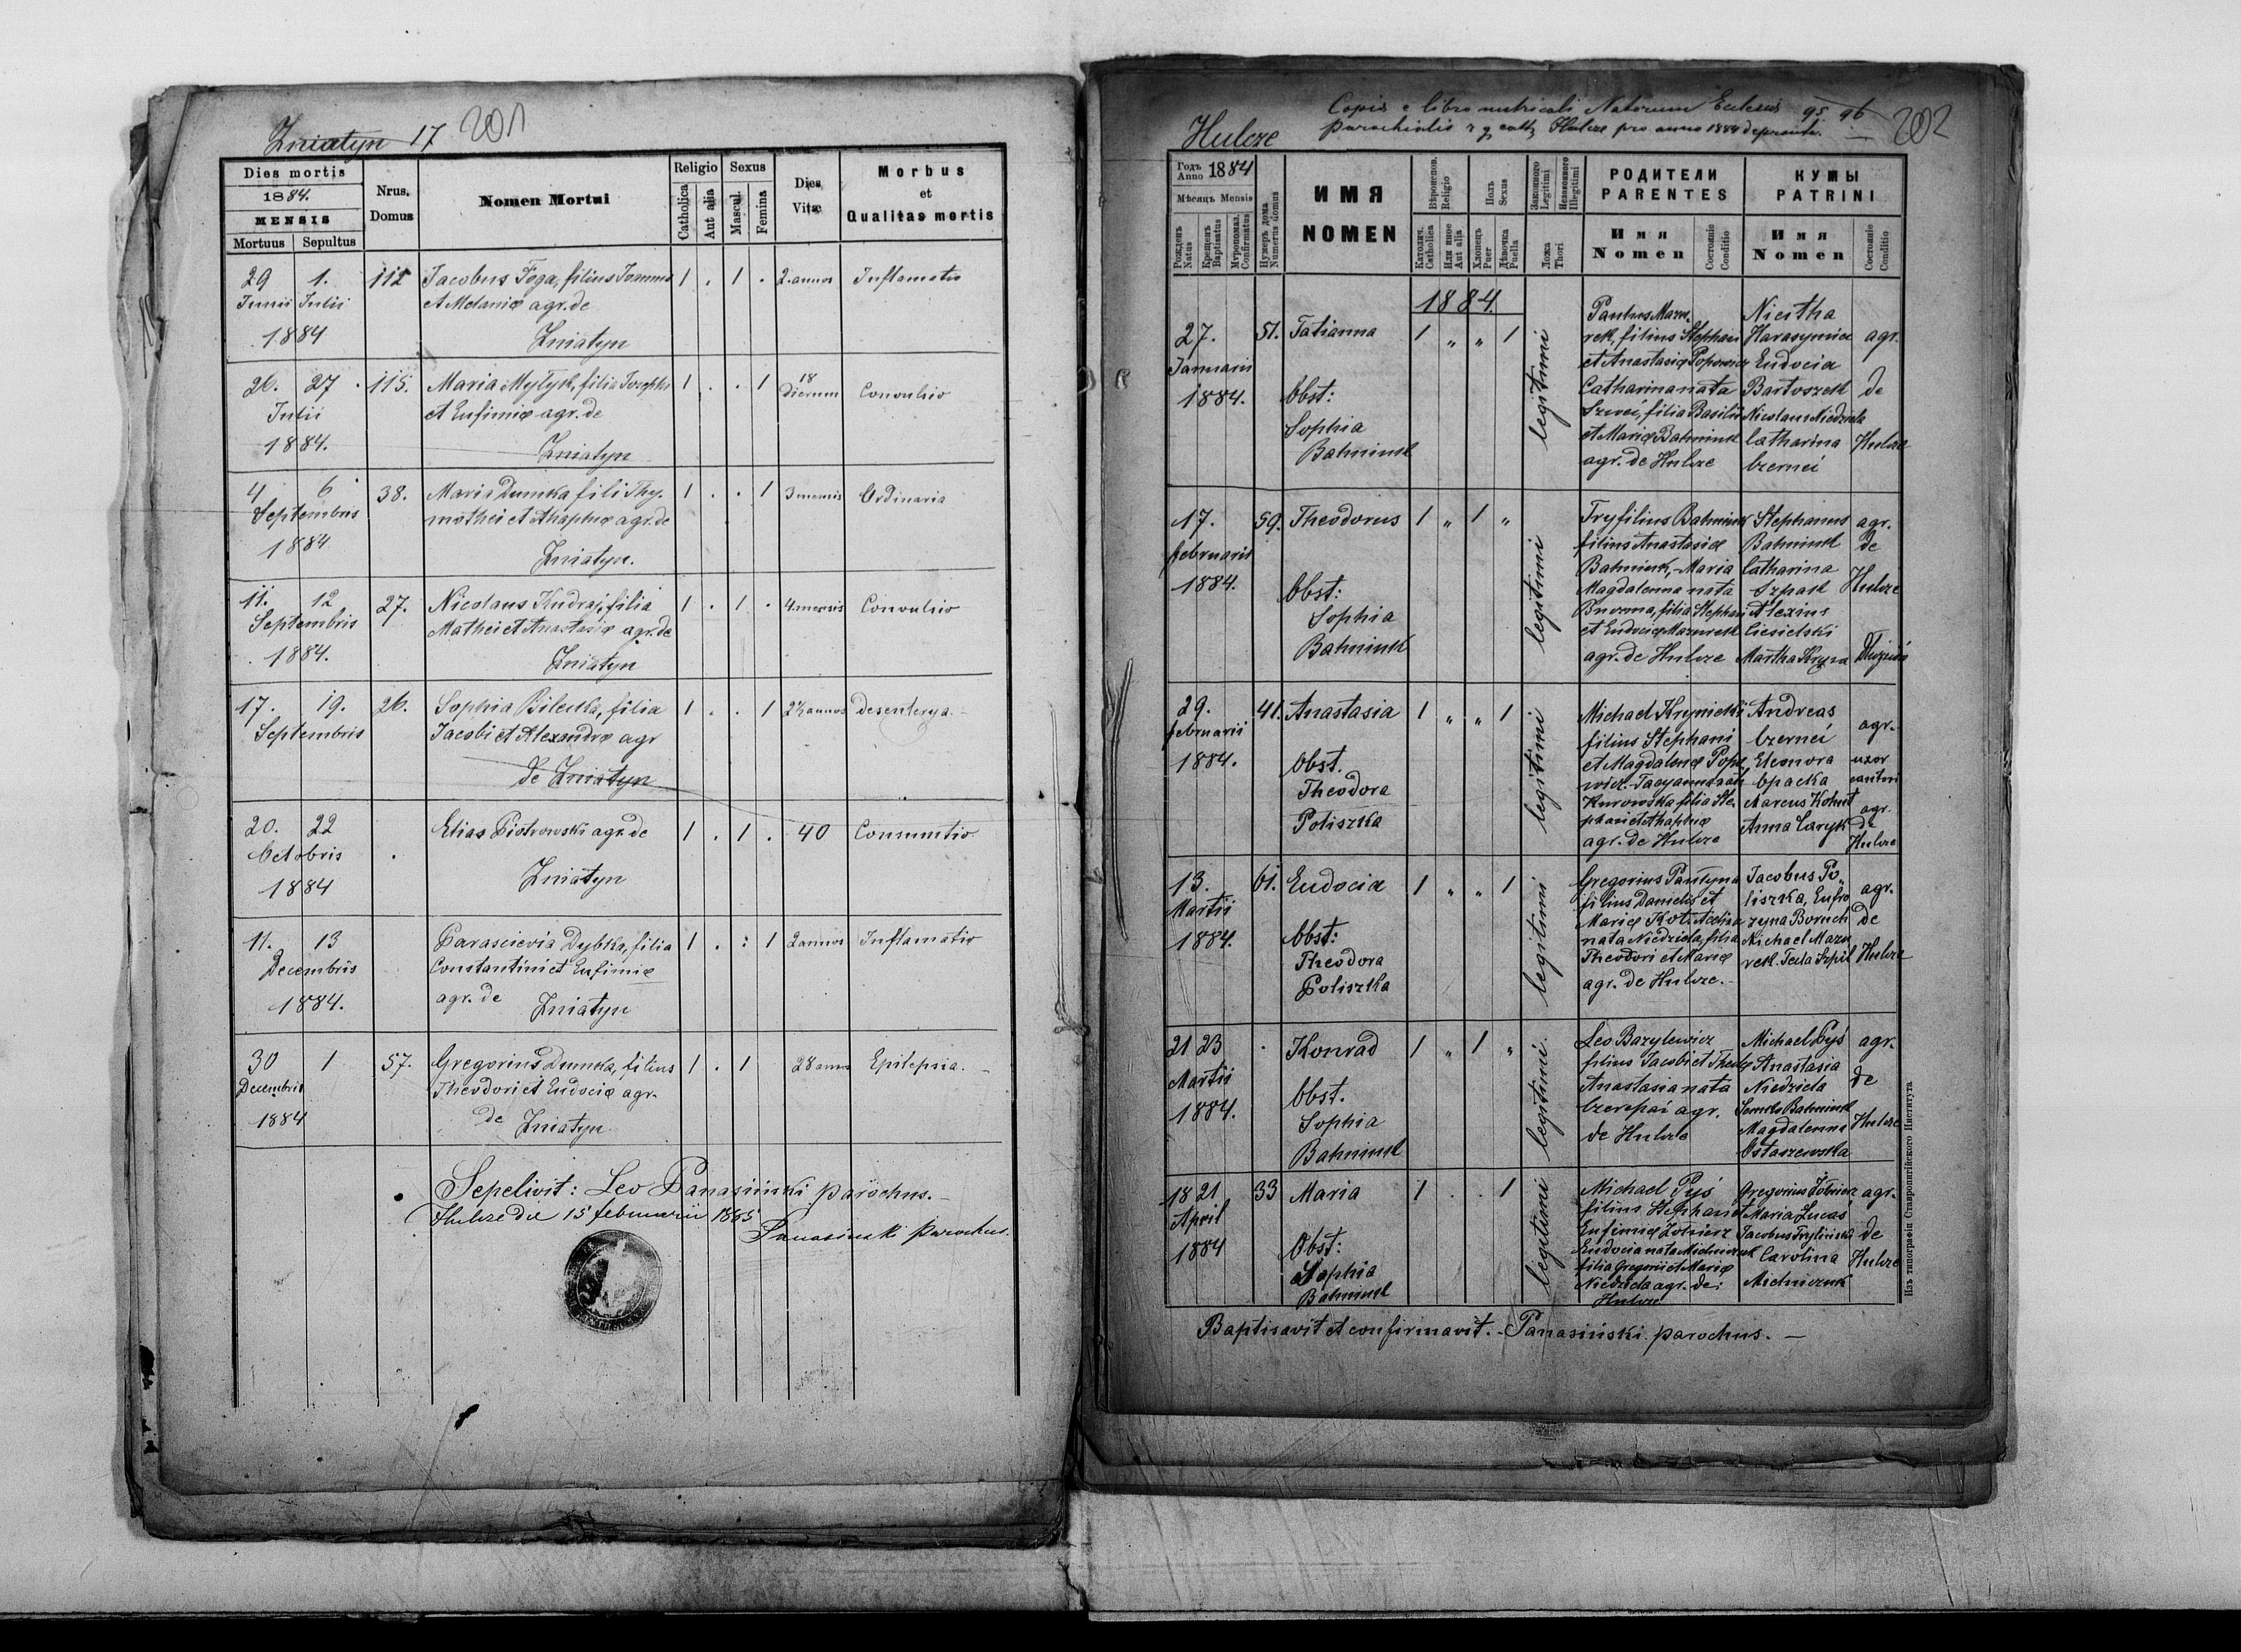 Zniatyn 17 201
Dies mortis
1884.
MENSIS
Mortuus Sepultus
Nrus. Domus
Nomen Mortui
Religio
Catholica
Aut alia
Sexus
Mascul.
Femina
Dies Vitæ
Morbus
et
Qualitas mortis
29 1. 112 Jacobus Foga, filius Joannis 1 . 1 . 2. annos Inflamatio
Junii Julii et Melaniæ agr. de
1884 Zniatyn
26. 27. 115. Maria Mytyk, filia Josephi 1 . . 1 18 dierum Convulsio
Julii et Eufimiæ agr. de
1884. Zniatyn
4 6 38. Maria Dumka fili Thy- 1 . . 1 3 mensis Ordinaria
Septembris mothei et Ahaphiæ agr. de
1884 Zniatyn.
11. 12 27. Nicolaus Kudraj, filia 1 . 1 . 4. mensis Convulsio
Septembris Mathei et Anastasiæ agr. de
1884. Zniatyn
17. 19. 26. Sophia Bilecka, filia 1 . . 1 2½ annos desenterya.
Septembris Jacobi et Alexandræ agr
de Zniatyn
20. 22 Elias Piotrowski agr. de 1 . 1 . 40 Consumtio
Octobris
1884 Zniatyn
11. 13 Parascievia Dybka, filia 1 . . 1 2 annos Inflamatio
Decembris Constantini et Eufimiæ
1884. agr. de Zniatyn
30 1 57. Gregorius Dumka, filius 1 . 1 28 annos Epilepsia.
Decembris Theodori et Eudociæ agr.
1884 de Zniatyn
Sepelivit: Leo Panasiński parochus.
Hulcze die 15 februarii 1885
Panasinski parochus.
Copia e libro metricali Natorum Ecclesiæ 95 96 202
Hulcze parochialis r g catt Hulcze pro anno 1884
Годъ Anno 1884
Мѣсяцъ Mensis
Рожденъ Natus
Крещенъ Baptisatus
Мvропомаз. Confirmatus
Нумеръ дома Numerus domus
ИМЯ
NOMEN
Вѣроисповѣд. Religio
Католич. Catholica
Или иное Aut alia
Полъ Sexus
Хлопецъ Puer
Дѣвочка Puella
Законного Legitimi
Незаконного Illegitimi
Ложа Thori
РОДИТЕЛИ
PARENTES
Имя Nomen
Состоянiе Conditio
КУМЫ
PATRINI
Имя Nomen
Состоянiе Conditio
1884.
27. Januarii 1884. 51. Tatianna 1 „ „ 1 legitimi
Obst:
Sophia
Bahniuk
Paulus Mazu-
rek, filius Stephani
et Anastasiæ Popowicz
Catharina nata
Szwei, filia Basilii
et Mariæ Bahniuk
agr. de Hulcze
Nicitha
Harasymiec
Eudocia
Bartoszek
Nicolaus Niedziela
Catharina
Czernei
agr.
de
Hulcze
17. februarii 1884. 59. Theodorus 1 „ 1 „ legitimi
Obst:
Sophia
Bahniuk
Tryfilius Bahniuk
filius Anastasiæ
Bahniuk, Maria
Magdalenna nata
filia Stephani
et Eudociæ Mazurek
agr. de Hulcze
Stephanus
Bahniuk
Catharina
Szpak
Alexius
Ciesielski
Martha
agr.
de
Hulcze
29. februarii 1884. 41. Anastasia 1 „ „ 1 legitimi
Obst.
Theodora
Poliszka
Michael Krynicki
filius Stephani
et Magdalenæ Popo-
wicz. nata
Kurowska filia Ste-
phani et Ahaphiæ
agr. de Hulcze
Andreas
Czerneí
Eleonora
Opacka
Marcus Kohut
Anna Caryk
agr.
uxor
cantori
agr.
de
Hulcze
13. Martii 1884. 61. Eudocia 1 „ „ 1 legitimi
Obst:
Theodora
Poliszka
Gregorius Pantyna
filius Danielis et
Mariæ Kot.
nata Niedziela, filia
Theodori et Mariæ
agr. de Hulcze.
Jacobus Po„
liszka, Eufro
zyna Boruch
Michael Mazu
rek. Tecla Szpil
agr.
de
Hulcze
21 23 Martii 1884. . Konrad 1 „ 1 „ legitimi.
Obst.
Sophia
Bahniuk
Leo Bazylewicz
filius Jacobi et Theclæ
Anastasia nata
Czerepaí agr.
de Hulcze
Michael Pyś
Anastasia
Niedziela
Semko Bahniuk
Magdalenna
Ostaszewska
agr.
de
Hulcze
18 21 April 1884 33 Maria 1 . . 1 legitimi
Obst:
Sophia
Bahniuk
Michael Pyś
filius Stephani et
Eufimiæ Żołnierz
Eudocia nata Michniczuk
filia Gregorii et Mariæ
Niedziela agr. de:
Hulcze
Gregorius Żołnierz
Maria Lucaś
Jacobus Fryliński
Carolina
Michniczuk
agr.
de
Hulcze
Baptisavit et confirmavit. - Panasiński. parochus. —
Изъ типографiи Ставропигiйского Института